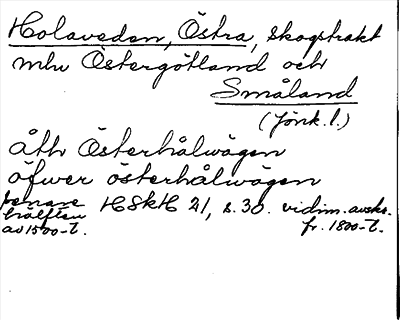 Holaveden, Östra, skogstrakt
mlu Östergötland och
Småland
(Jönk. l.)
åth Österhålwägen
öfwer österhålwägen
senare hälften av 1500-t. HSkH 21, s. 30. vidim. avskr. fr. 1800-t.